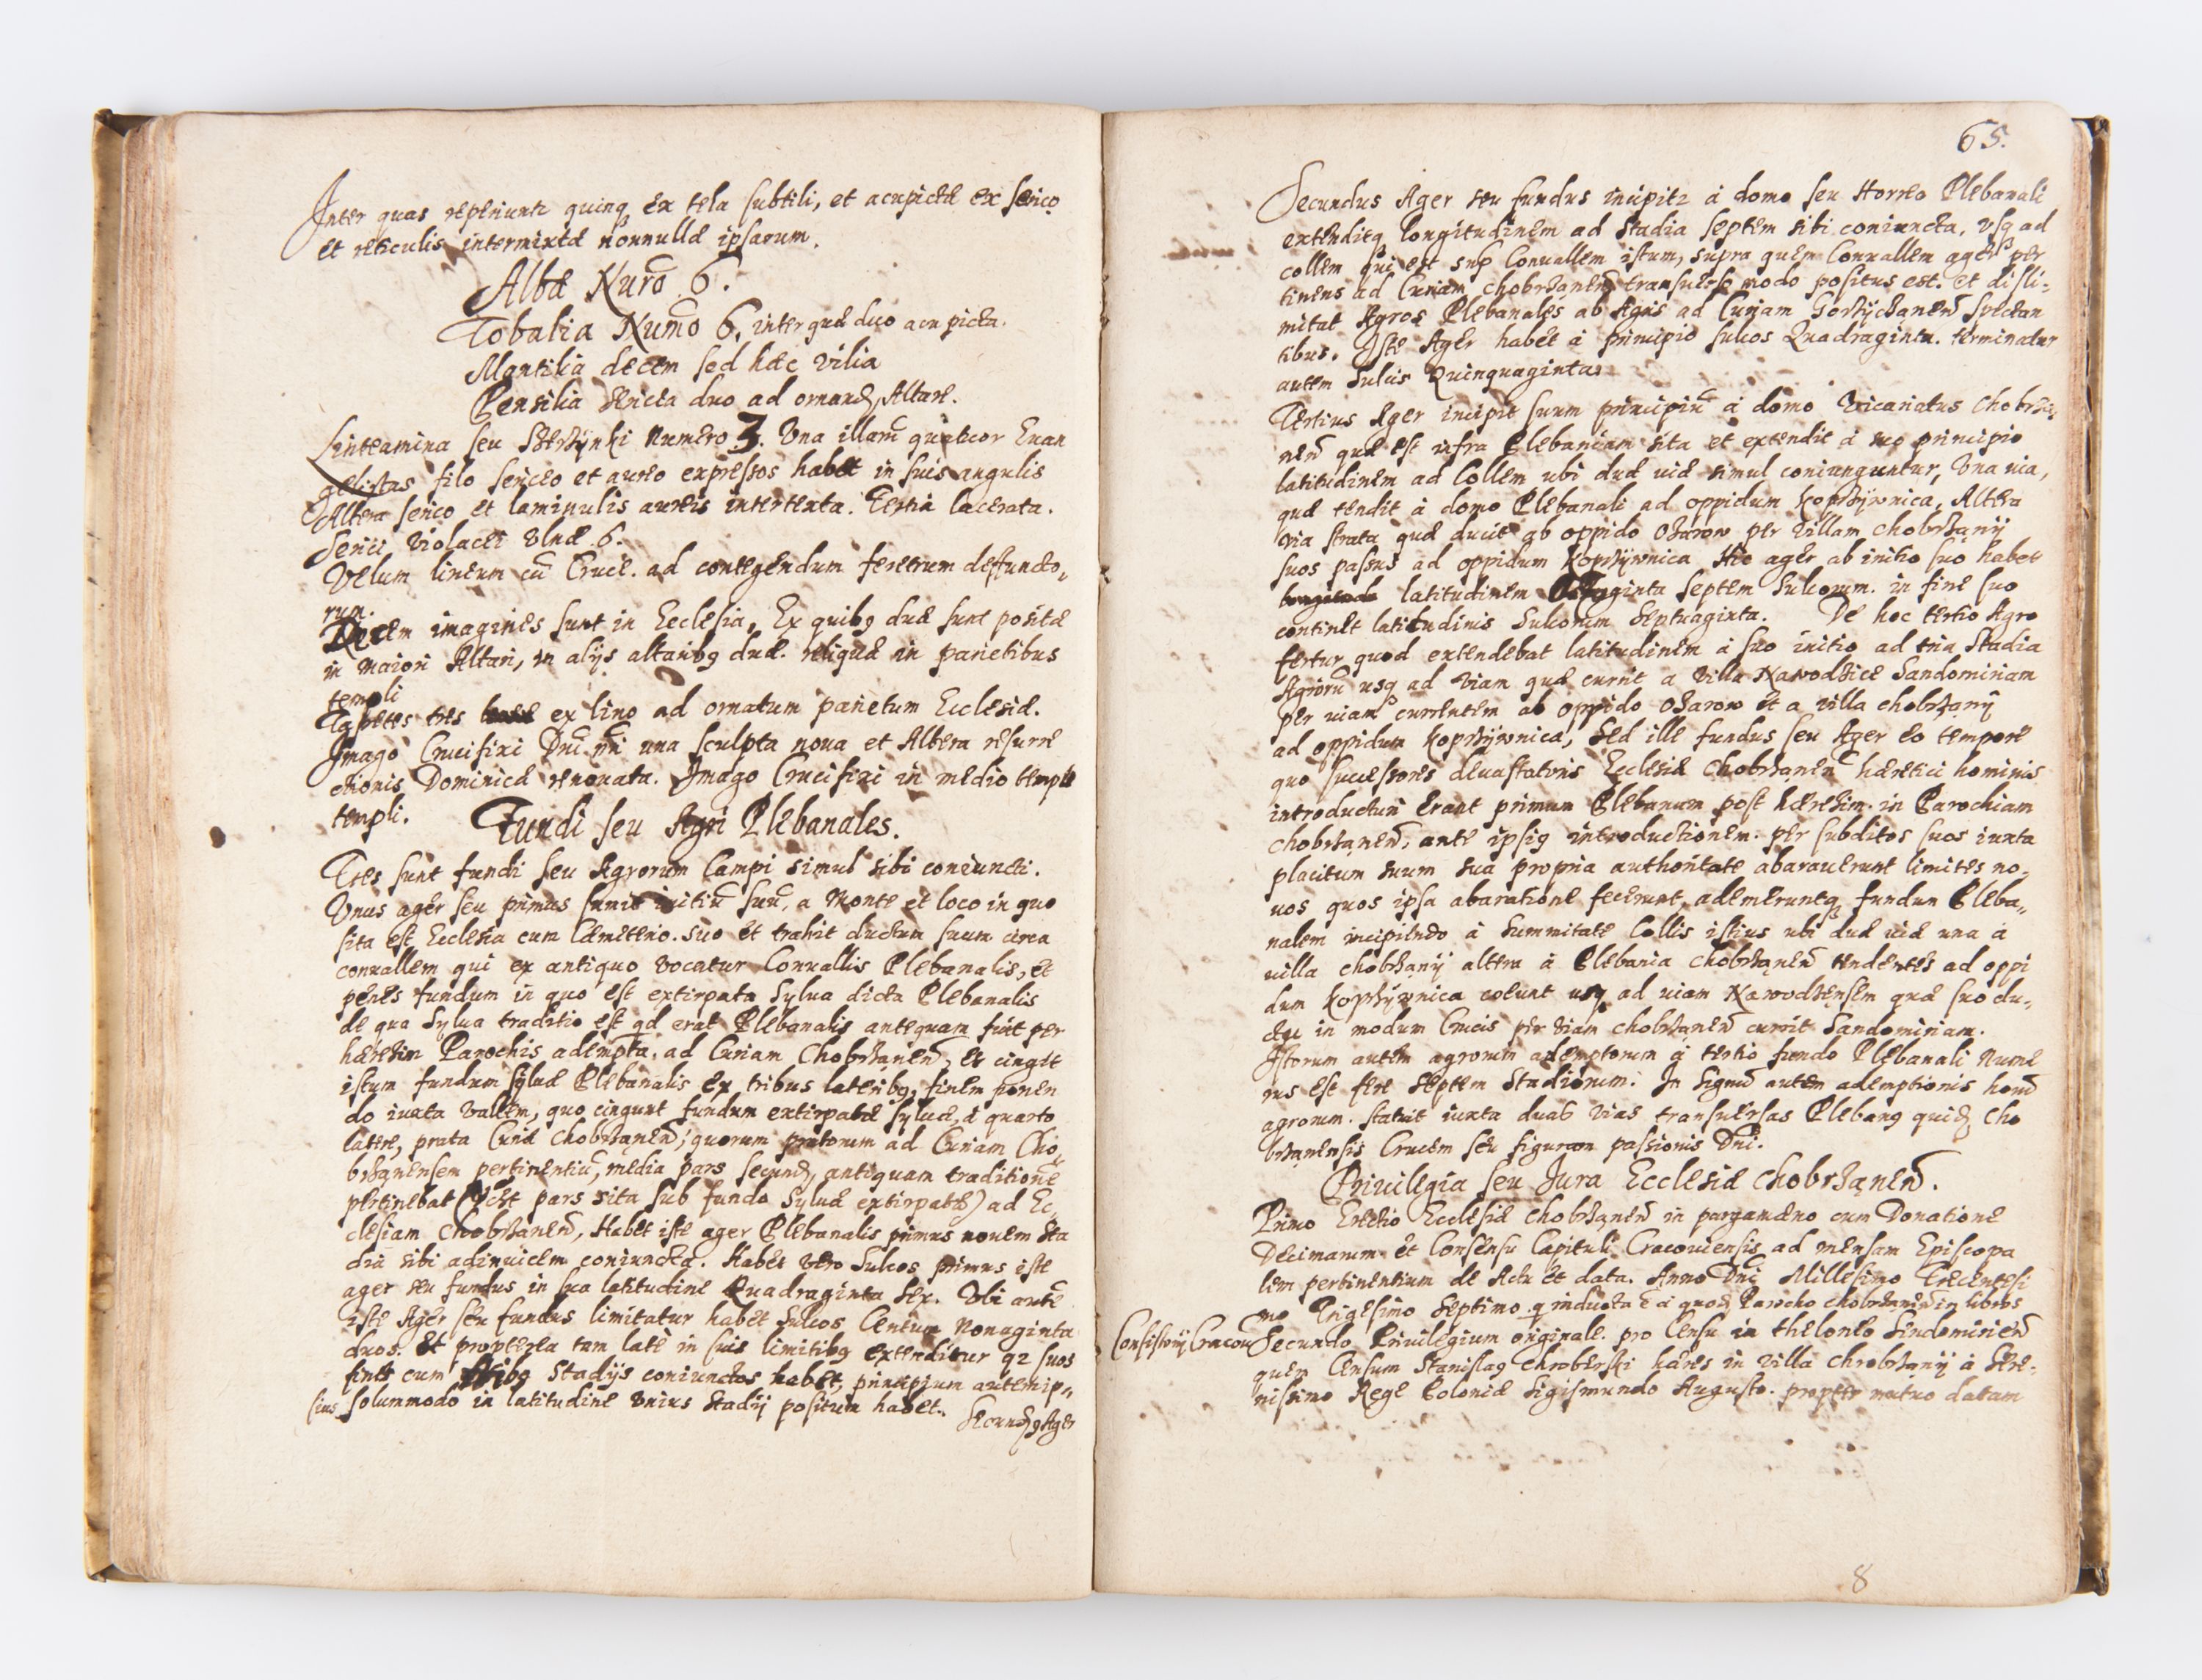 Inter quas reperiuntr quinq ex tela subtili, et acupictæ ex serico
et reticulis intermixtæ nonnullæ ipsarum.
Albæ Nuro 6.
Tobalia Numo 6. inter quæ duo acu picta.
Mantilia decem sed hæc vilia
Pensilia stricta duo ad ornand Altare.
Linteamina seu Szerzynki numero 3. Una illarū quatuor Euan
gelistas filo sericeo et aureo expressos habet in suis angulis
Altera serico et laminulis aureis intertexta. Tertia lacerata.
Serici violacei Vlnæ 6.
Velum lineum cū Cruce. ad contegendum feretrum defuncto„
rum.
Decem imagines sunt in Ecclesia, Ex quibq duæ sunt positæ
in maiori Altari, in alijs altaribq duæ. reliquæ in parietibus
templi
Tapetes tres ex lino ad ornatum parietum Ecclesiæ.
Imago Crucifixi Dni nri una sculpta noua et Altera resurre
ctionis Dominicæ renouata. Imago Crucifixi in medio
templi.
Fundi seu Agri Plebanales.
Tres sunt fundi seu Agrorum Campi simul sibi coniuncti.
Vnus ager seu primus sumit initiū suū, a Monte et loco in quo
sita est Ecclesia cum Cæmeterio. suo et trahit ductum suum circa
conuallem qui ex antiquo vocatur Conuallis Plebanalis, et
penes fundum in quo est extirpata Sylua dicta Plebanalis
de qua Sylua traditio est qd erat Plebanalis antequam fuit per
hæresim Parochis adempta, ad Curiam Chobrzanen, et cingit
istum fundum syluæ Plebanalis ex tribus lateribq, finem ponen
do iuxta vallem, quo cingunt fundum extirpatæ syluæ, à quarto
latere, prata Curiæ Chobrzanen, quorum pratorum ad Curiam Cho„
brzanensem pertinentiū, media pars secund antiquam traditione
pertinebat (id est pars sita sub fundo Syluæ extirpatæ) ad Ec„
clesiam Chobrzanen, Habet iste ager Plebanalis primus nouem sta
dia sibi adinuicem coniuncta. Habet vero Sulcos primus iste
ager seu fundus in sua latitudine Quadraginta sex. Vbi autē
iste Ager seu fundus limitatur habet sulcos Centum Nonaginta
duos. Et propterea tam latè in suis limitibq extenditur qz suos
fines cum stadijs coniunctos habet, principium autem ip„
sius solummodo in latitudine vnius Stadij positum habet.
Secundq Ager
65.
Secundus Ager seu fundus incipitr à domo seu Horreo Plebanali
extenditq longitudinem ad stadia septem sibi coniuncta, vsq ad
collem qui est sup Conuallem istum, supra quem Conuallem ager per
tinens ad Curiam Chobrzanen transuerso modo positus est. et disli=
mitat Agros Plebanales ab Agris ad Curiam Gorzyczanen spectan
tibus. Iste Ager habet à principio sulcos Quadraginta. terminatur
autem Sulcis Quinquaginta.
Tertius Ager incipit suum principiū à domo Vicariatus Chobrza,
nen quæ est infra Plebaniam sita et extendit à suo principio
latitudinem ad Collem ubi duæ uiæ simul coniunguntur, Vna uia,
quæ tendit à domo Plebanali ad oppidum Koprzywnica, Altera
via strata quæ ducit ab oppido Ożarow per villam Chobrzanij
suos passus ad oppidum Koprzywnica Hic ager ab initio suo habet
latitudinem septem Sulcorum. in fine suo
continet latitudinis Sulcorum Septuaginta. De hoc tertio Agro
fertur quod extendebat latitudinem à suo initio ad tria Stadia
Agrorū usq ad viam quæ currit a villa Nawodzice Sandomiriam
per uiam currentem ab oppido Ożarow et a villa Chobrzanij
ad oppidum Koprzywnica, Sed ille fundus seu Ager eo tempore
quo successores deuastatoris Ecclesiæ Chobrzanen hæretici hominis
introducturi erant primum Plebanum post hæresim in Parochiam
Chobrzanen, ante ipsiq introductionem. per subditos suos iuxta
placitum suum sua propria authoritate abarauerunt limites no„
uos quos ipsa abaratione fecerunt, ademeruntq fundum Pleba„
nalem incipiendo à Summitate Collis istius ubi duæ uiæ una à
uilla Chobrzanij altera à Plebania Chobrzanen tendentes ad oppi
dum Koprzywnica coeunt usq ad uiam Nawodzensem quæ suo du„
ctu in modum Crucis per viam Chobrzanen currit Sandomiriam.
Istorum autem agrorum ademptorum à tertio fundo Plebanali Nume
rus est fere Septem Stadiorum. In Signū autem ademptionis horū
agrorum. statuit iuxta duas vias transuersas Plebanq quid Cho
brzanensis Crucem seu figuram passionis Dni.
Priuilegia seu Jura Ecclesiæ Chobrzanen.
Primo Erectio Ecclesiæ Chobrzanen in pargameno cum Donatione
Decimarum et Consensu Capituli Cracouiensis ad mensam Episcopa
lem pertinentium de Actu et data. Anno Dni Millesimo Trecentesi
mo Trigesimo Septimo. q inducta ē à quod Parocho Chobrzanen in libros
Consistorij Cracou Secundo Priuilegium originale. pro Censu in theloneo Sendomirien
quem Censum Stanislaq Chroberski hæres in villa Chrobrzanij à Sere=
nissimo Rege Poloniæ Sigismundo Augusto. propter mutuo datam
8